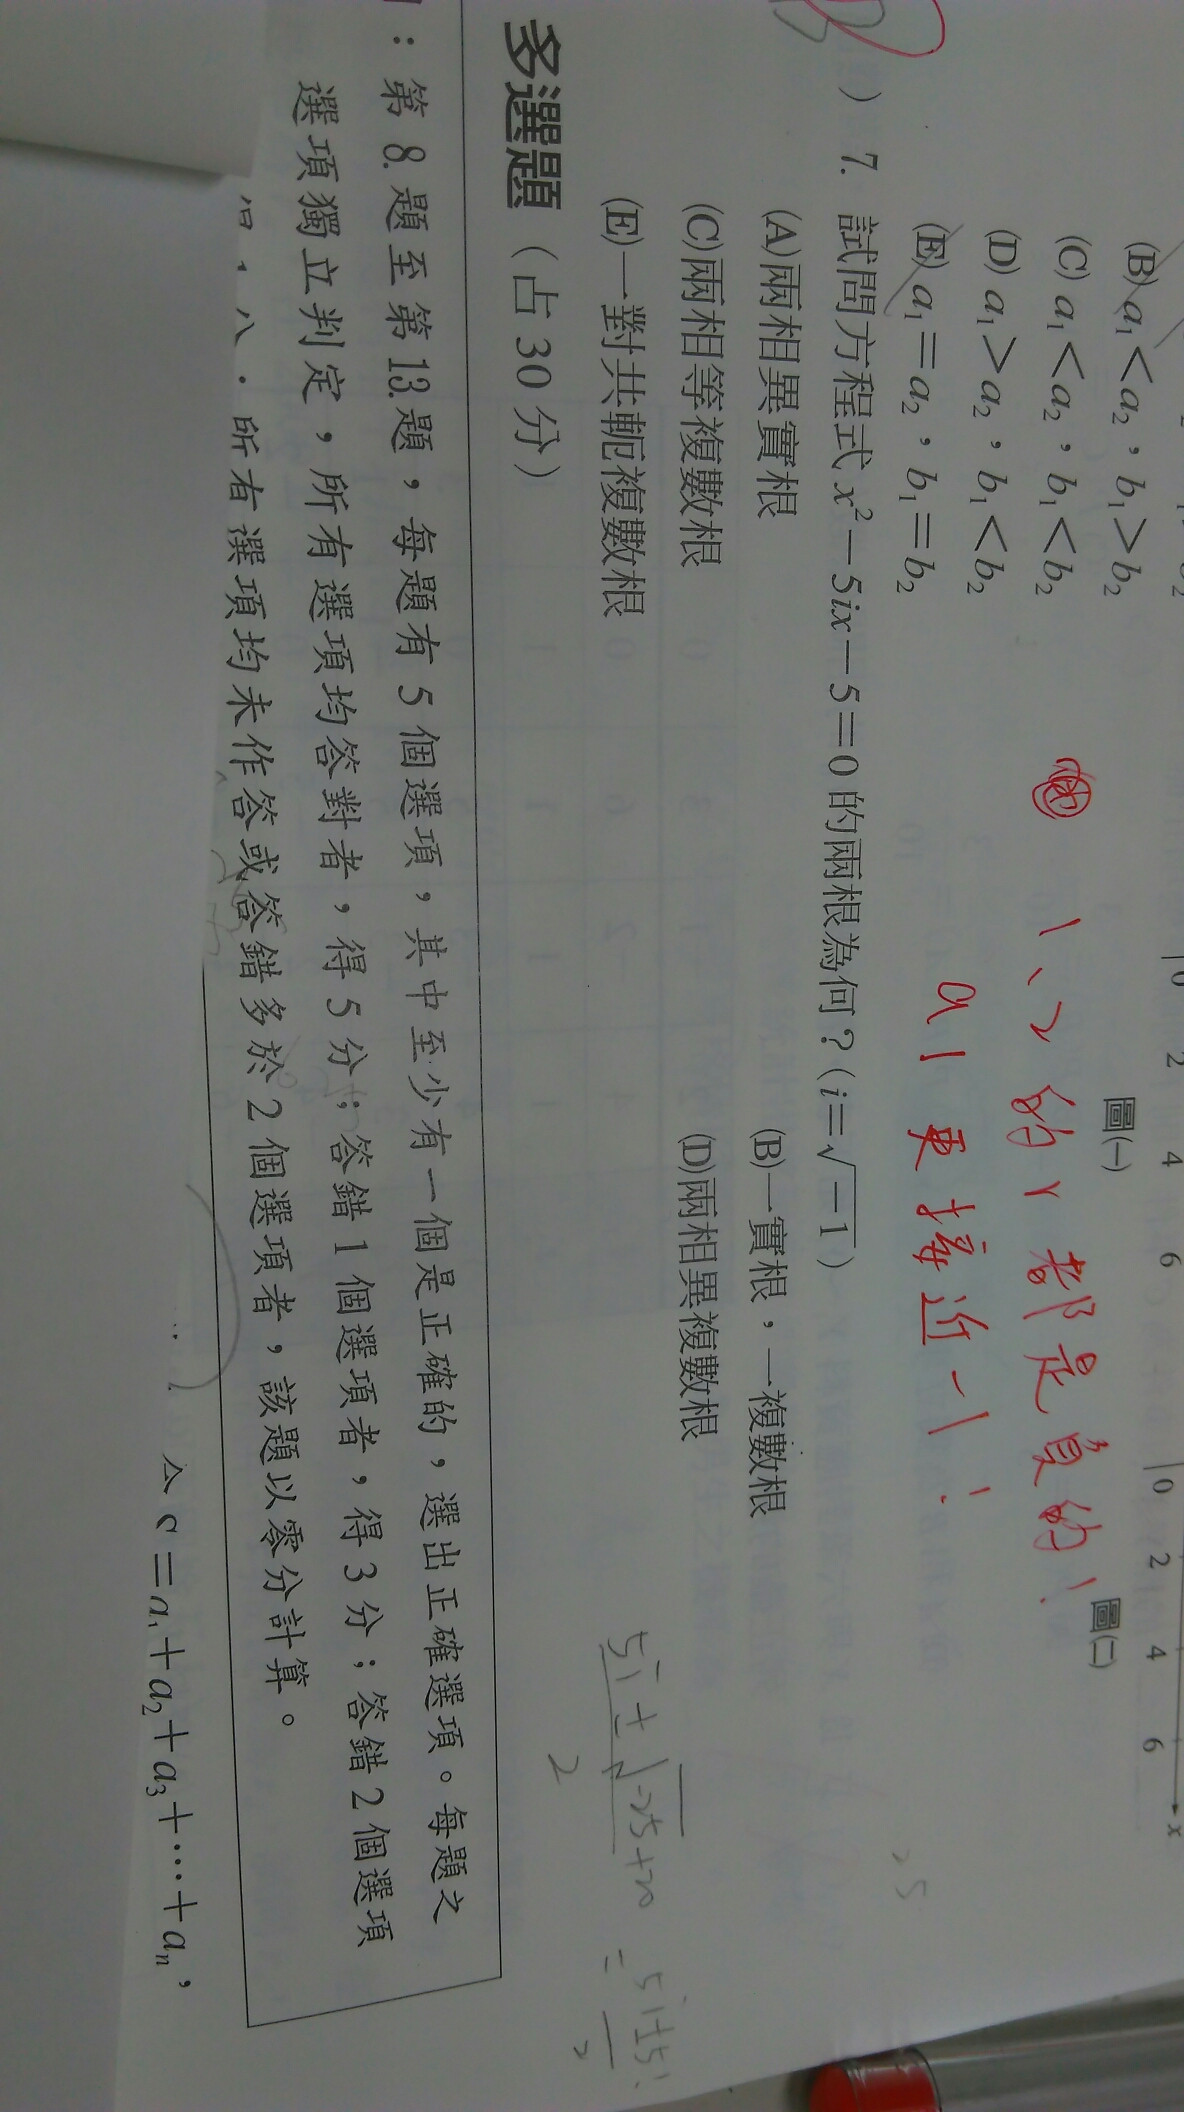 (B) a₁<a₂，b₁>b₂
(C) a₁<a₂，b₁<b₂
(D) a₁>a₂，b₁<b₂
(E) a₁=a₂，b₁=b₂
0 2 4 6
圖(一)
0 2 4 6 x
圖(二)
1、2的r都是負的!
a1更接近-1!
) 7. 試問方程式 x²-5ix-5=0 的兩根為何?(i=√-1)
(A)兩相異實根 (B)一實根，一複數根
(C)兩相等複數根 (D)兩相異複數根
(E)一對共軛複數根
25
5i±√-25+20
2
=
5i±√5i
2
多選題（占 30 分）
：第 8.題至第 13.題，每題有 5 個選項，其中至少有一個是正確的，選出正確選項。每題之
選項獨立判定，所有選項均答對者，得 5 分；答錯 1 個選項者，得 3 分；答錯 2 個選項
所有選項均未作答或答錯多於 2 個選項者，該題以零分計算。
=a₁+a₂+a₃+⋯+aₙ，